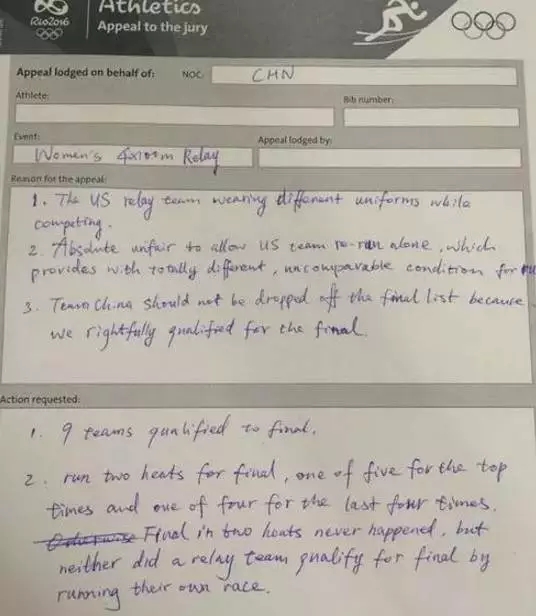 Athletics
Rio2016
Appeal to the jury
Appeal lodged on behalf of: NOC: CHN
Athlete:
Bib number:
Event:
Women's 4x100m Relay
Appeal lodged by:
Reason for the appeal:
1. The US relay team wearing different uniforms while
competing.
2. Absolute unfair to allow US team re-run alone, which
provides with totally different, uncomparable condition for
3. Team China should not be dropped off the final list because
we rightfully qualified for the final.
Action requested:
1. 9 teams qualified to final.
2. run two heats for final, one of five for the top
times and one of four for the last four times.
Otherwise Final in two heats never happened, but
neither did a relay team qualify for final by
running their own race.